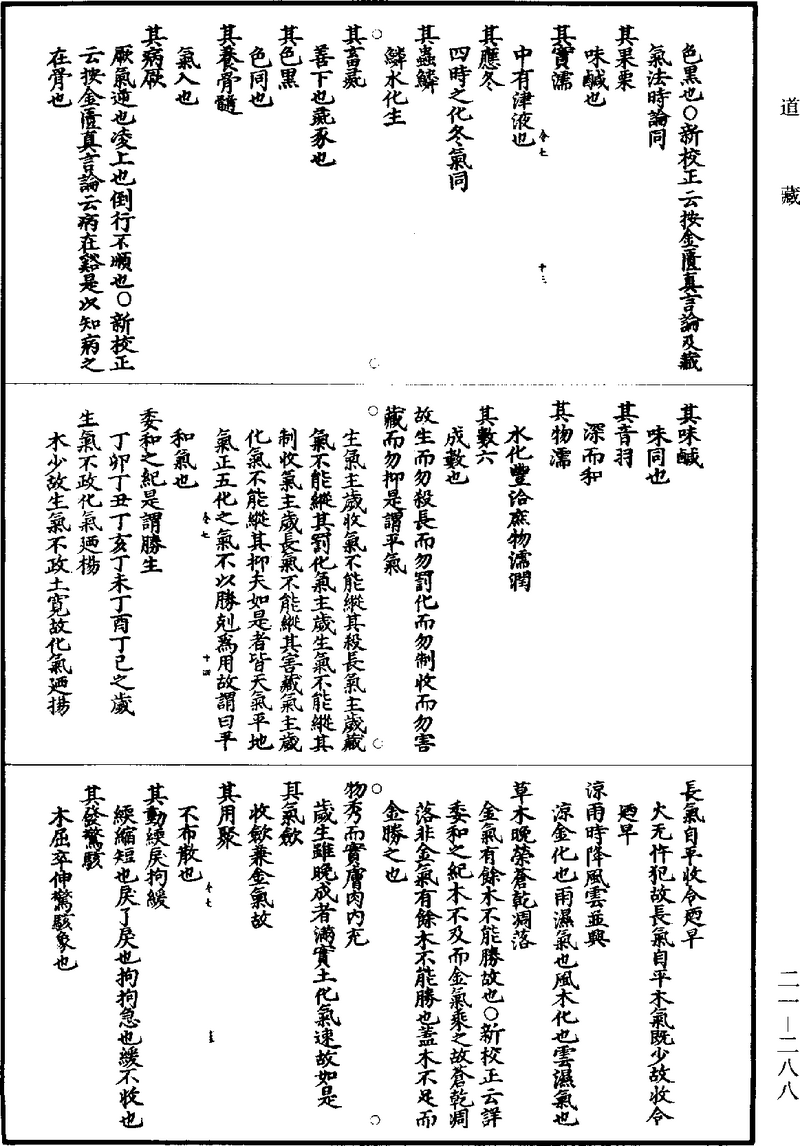 道藏
色黑也○新校正云按金匱真言論及藏
氣法時論同
其果栗
味鹹也
其實濡
中有津液也
卷七
十三
其應冬
四時之化冬氣同
其蟲鱗
鱗水化生
其畜彘
善下也彘豕也
其色黑
色同也
其養骨髓
氣入也
其病厥
厥氣逆也凌上也倒行不順也○新校正
云按金匱真言論云病在谿是以知病之
在骨也
其味鹹
味同也
其音羽
深而和
其物濡
水化豐洽庶物濡潤
其數六
成數也
故生而勿殺長而勿罰化而勿制收而勿害
藏而勿抑是謂平氣
生氣主歲收氣不能縱其殺長氣主歲藏
氣不能縱其罰化氣主歲生氣不能縱其
制收氣主歲長氣不能縱其害藏氣主歲
化氣不能縱其抑夫如是者皆天氣平地
氣正五化之氣不以勝剋爲用故謂曰平
卷七
十四
和氣也
委和之紀是謂勝生
丁卯丁丑丁亥丁未丁酉丁巳之歲
生氣不政化氣廼揚
木少故生氣不政土寬故化氣廼揚
長氣自平收令廼早
火无忤犯故長氣自平木氣既少故收令
廼早
涼雨時降風雲並興
涼金化也雨濕氣也風木化也雲濕氣也
草木晚榮蒼乾凋落
金氣有餘木不能勝故也○新校正云詳
委和之紀木不及而金氣乘之故蒼乾凋
落非金氣有餘木不能勝也蓋木不足而
金勝之也
物秀而實膚肉内充
歲生雖晚成者滿實土化氣速故如是
其氣斂
收斂兼金氣故
其用聚
不布散也
卷七
十五
其動緛戾拘緩
緛縮短也戾了戾也拘拘急也緩不收也
其發驚駭
木屈卒伸驚駭象也
二一—二八八